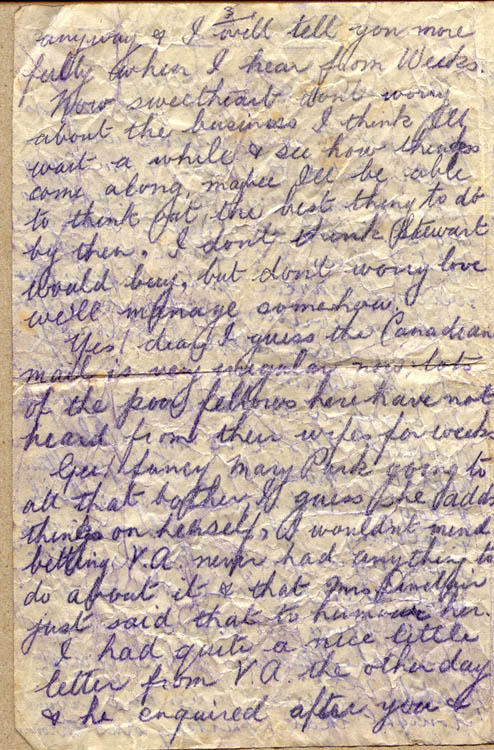 3
anyway & I will tell you more
fully when I hear from Weeks.
Now sweetheart don't worry
about the business I think I'll
wait a while & see how things
come along, maybe I'll be able
to think out the best thing to do
by then. I don't think Stewart
would buy, but don't worry love
we'll manage somehow.
Yes, dear, I guess the Canadian
mail is very irregular now lots
of the poor fellows here have not
heard from their wifes for weeks
Gee! fancy Mary Park going to
all that bother I guess she adds
things on herself, I wouldn't mind
betting V.A. never had anything to
do about it & that Mrs Sinclair
just said that to humour her.
I had quite a nice little
letter from V.A. the other day
& he enquired after you &